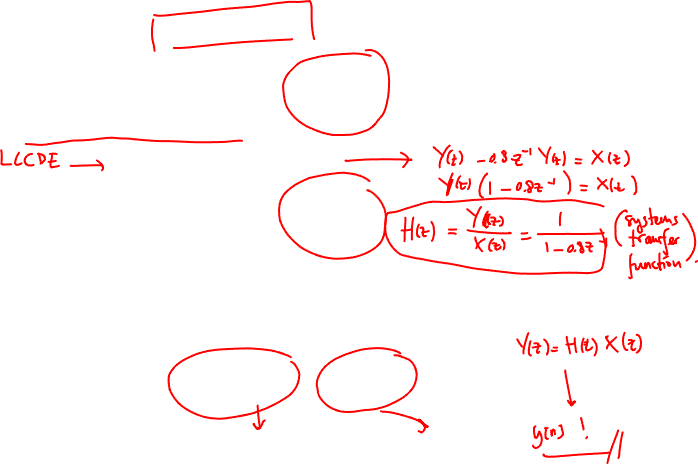 LCCDE →
→ Y(z) - 0.8z⁻¹ Y(z) = X(z)
Y(z) (1 - 0.8z⁻¹) = X(z)
H(z) = Y(z)/X(z) = 1/(1 - 0.8z⁻¹) (systems transfer function).
Y(z) = H(z) X(z)
y[n] !